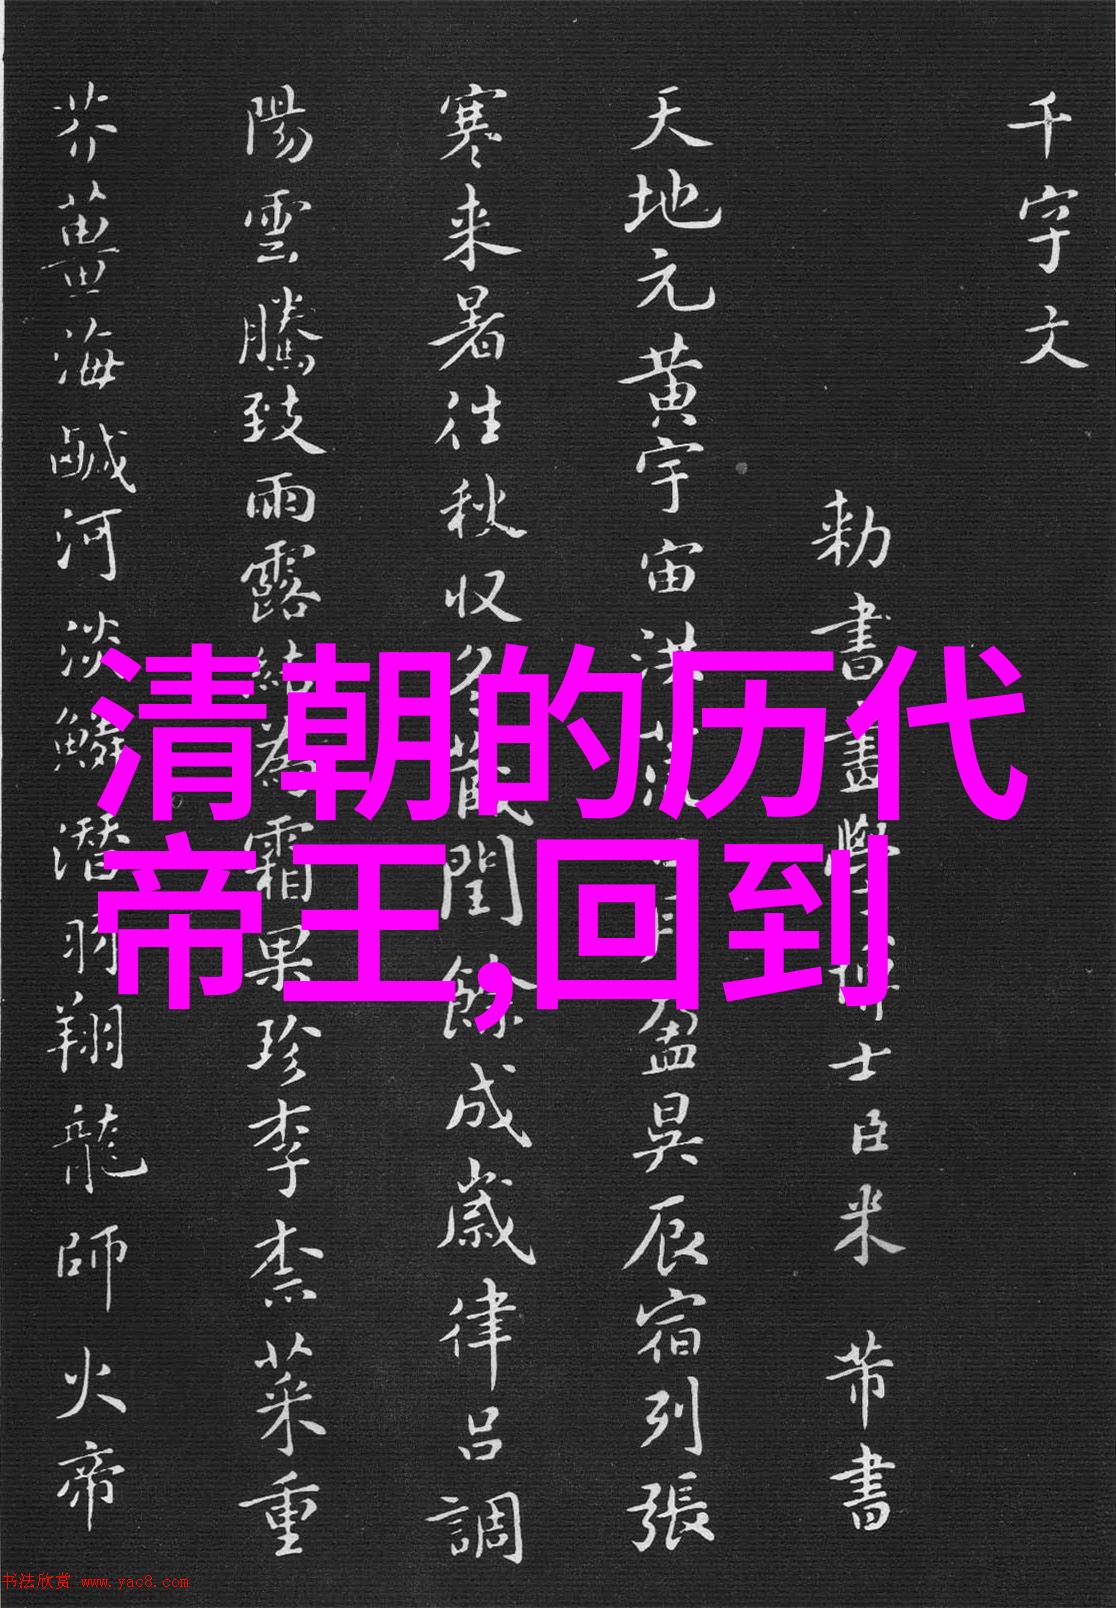 千字文
勅書畫學博士臣米 芾書
天地元黄宇宙洪荒日月盈昃辰宿列張
寒来暑往秋収冬藏閏餘成歲律吕調
陽雲騰致雨露結為霜果珍李柰菜重
芥薑海鹹河淡鱗潛羽翔龍師火帝
清朝的历代
帝王,回到
书法欣赏 www.yac8.com